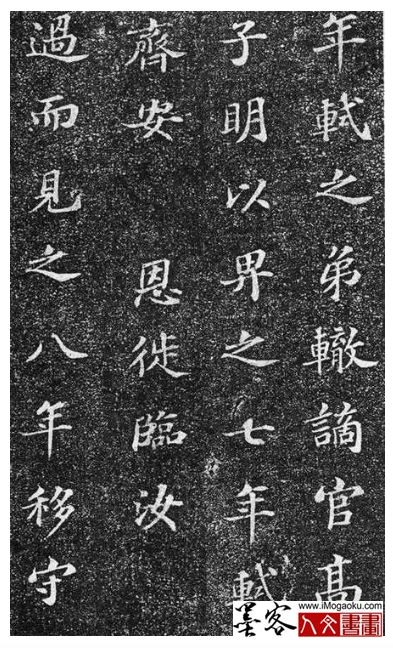 年軾之弟轍謫官高
子明以畀之七年軾
齊安 恩徙臨汝
過而見之八年移守
墨客
www.iMogaoku.com
人文書畫